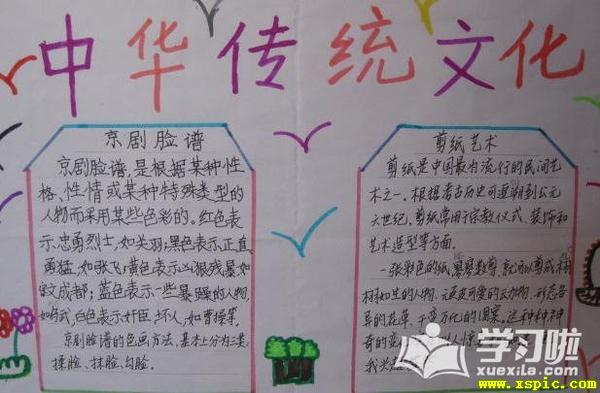 中华传统文化
京剧脸谱
京剧脸谱,是根据某种性
格、性情或某种特殊类型的
人物而采用某些色彩的。红色表
示忠勇烈士,如关羽;黑色表示正直
勇猛,如张飞;黄色表示凶狠残暴,如
宇文成都;蓝色表示一些暴躁的人物,
如马武;白色表示奸臣、坏人,如曹操等。
京剧脸谱的色画方法,基本上分为三类:
揉脸、抹脸、勾脸。
剪纸艺术
剪纸是中国最为流行的民间艺
术之一,根据考古历史可追溯到公元
六世纪,剪纸常用于宗教仪式、装饰和
艺术造型等方面。
一张彩色的纸
如生的人物、可爱的
花草、千变万化的图案。这种神
奇的
我
学习啦
xuexila.com
www.xspic.com